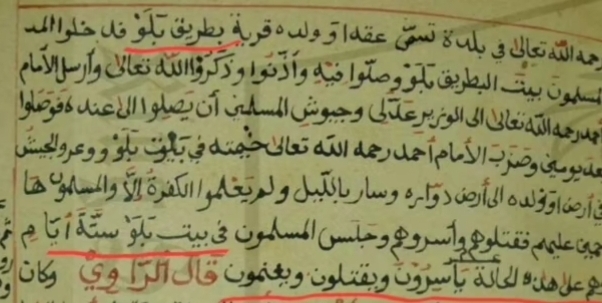 رحمه الله تعالى في بلدة تسمى عقدا او ولده قرية بطريق بلو فدخلوا المد
المسلمون بيت البطريق بلو وصلوا فيه وأذنوا وذكروا الله تعالى وأرسل الأمام
أحمد رحمه الله تعالى الى الوزير عدلى وجيوش المسلمين أن يصلوا الى عنده فوصلوا
بعد يومين وضرب الأمام أحمد رحمه الله تعالى خيمته في بيت بلو وعر والجيش
في أرض اوولده الى أرض دواره وسار بالليل ولم يعلموا الكفرة إلا والمسلمون ها
جمين عليهم فقتلوهم وأسروهم وجلس المسلمون في بيت بلو ستة أيام
وهم على هذه الحالة يأسرون ويقتلون ويغنمون قال الراوي وكان